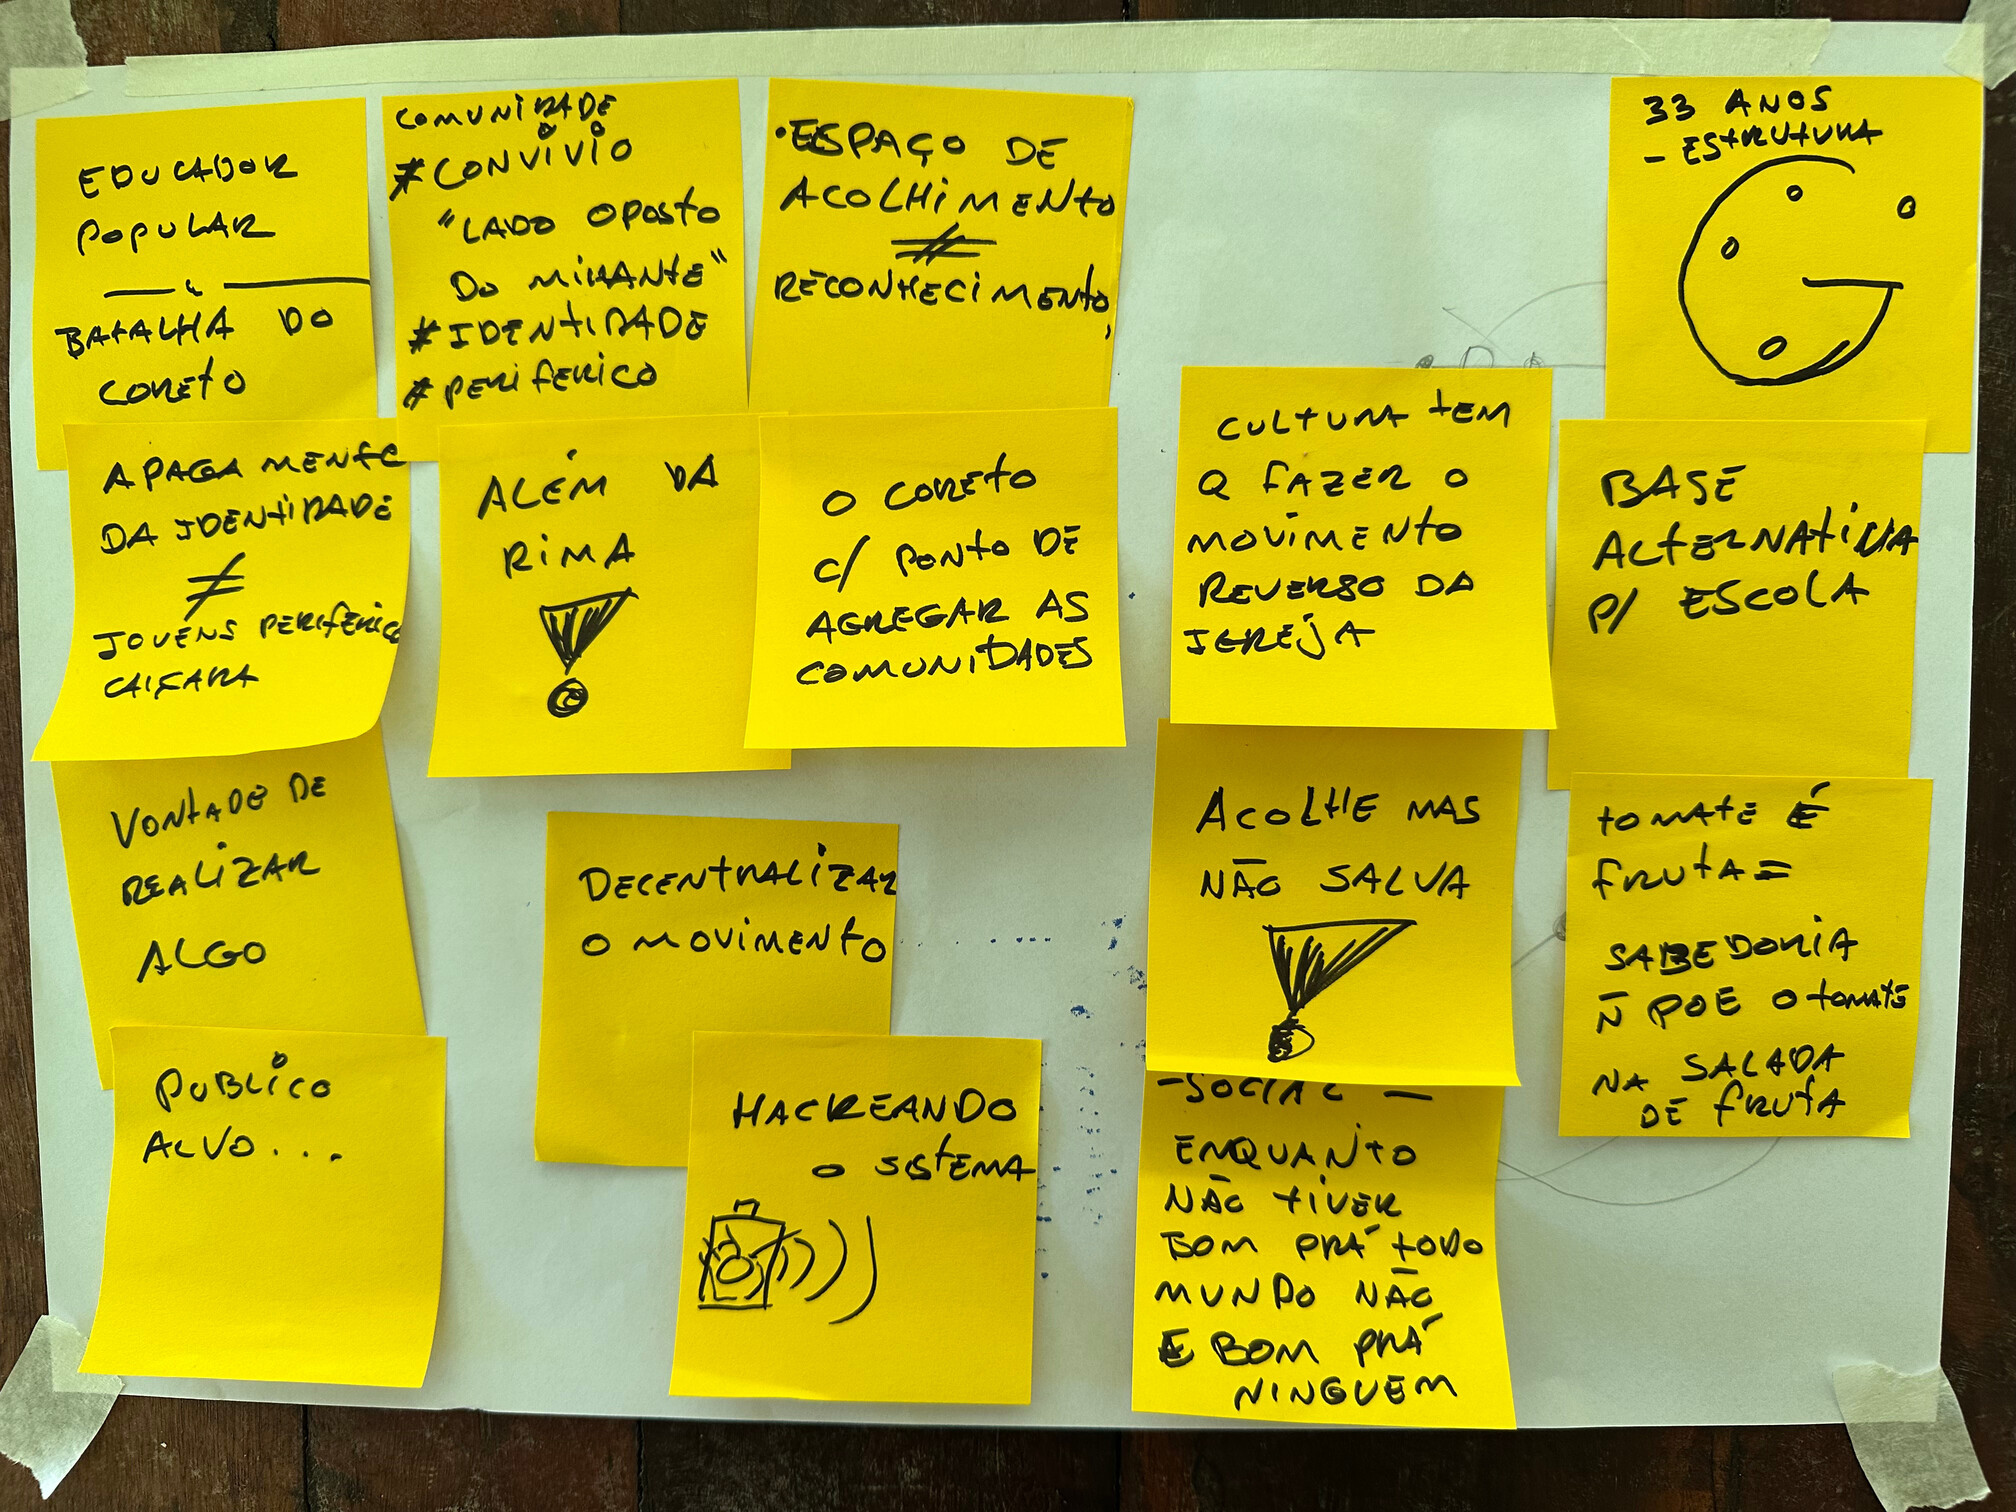 EDUCADOR
POPULAR
BATALHA DO
CORETO
COMUNIDADE
#CONVÍVIO
"LADO OPOSTO
DO MIRANTE"
#IDENTIDADE
#PERIFERICO
•ESPAÇO DE
ACOLHIMENTO
≠
RECONHECIMENTO,
33 ANOS
- ESTRUTURA
APAGAMENTO
DA IDENTIDADE
≠
JOVENS PERIFERICO
CAIÇARA
ALÉM DA
RIMA
O CORETO
C/ PONTO DE
AGREGAR AS
COMUNIDADES
CULTURA TEM
Q FAZER O
MOVIMENTO
REVERSO DA
IGREJA
BASE
ALTERNATIVA
P/ ESCOLA
VONTADE DE
REALIZAR
ALGO
DECENTRALIZAR
O MOVIMENTO
ACOLHE MAS
NÃO SALVA
TOMATE É
FRUTA =
SABEDORIA
Ñ POE O TOMATE
NA SALADA
DE FRUTA
PUBLICO
ALVO...
HACKEANDO
O SISTEMA
-SOCIAL -
ENQUANTO
NÃO TIVER
BOM PRÁ TODO
MUNDO NÃO
E BOM PRÁ
NINGUEM